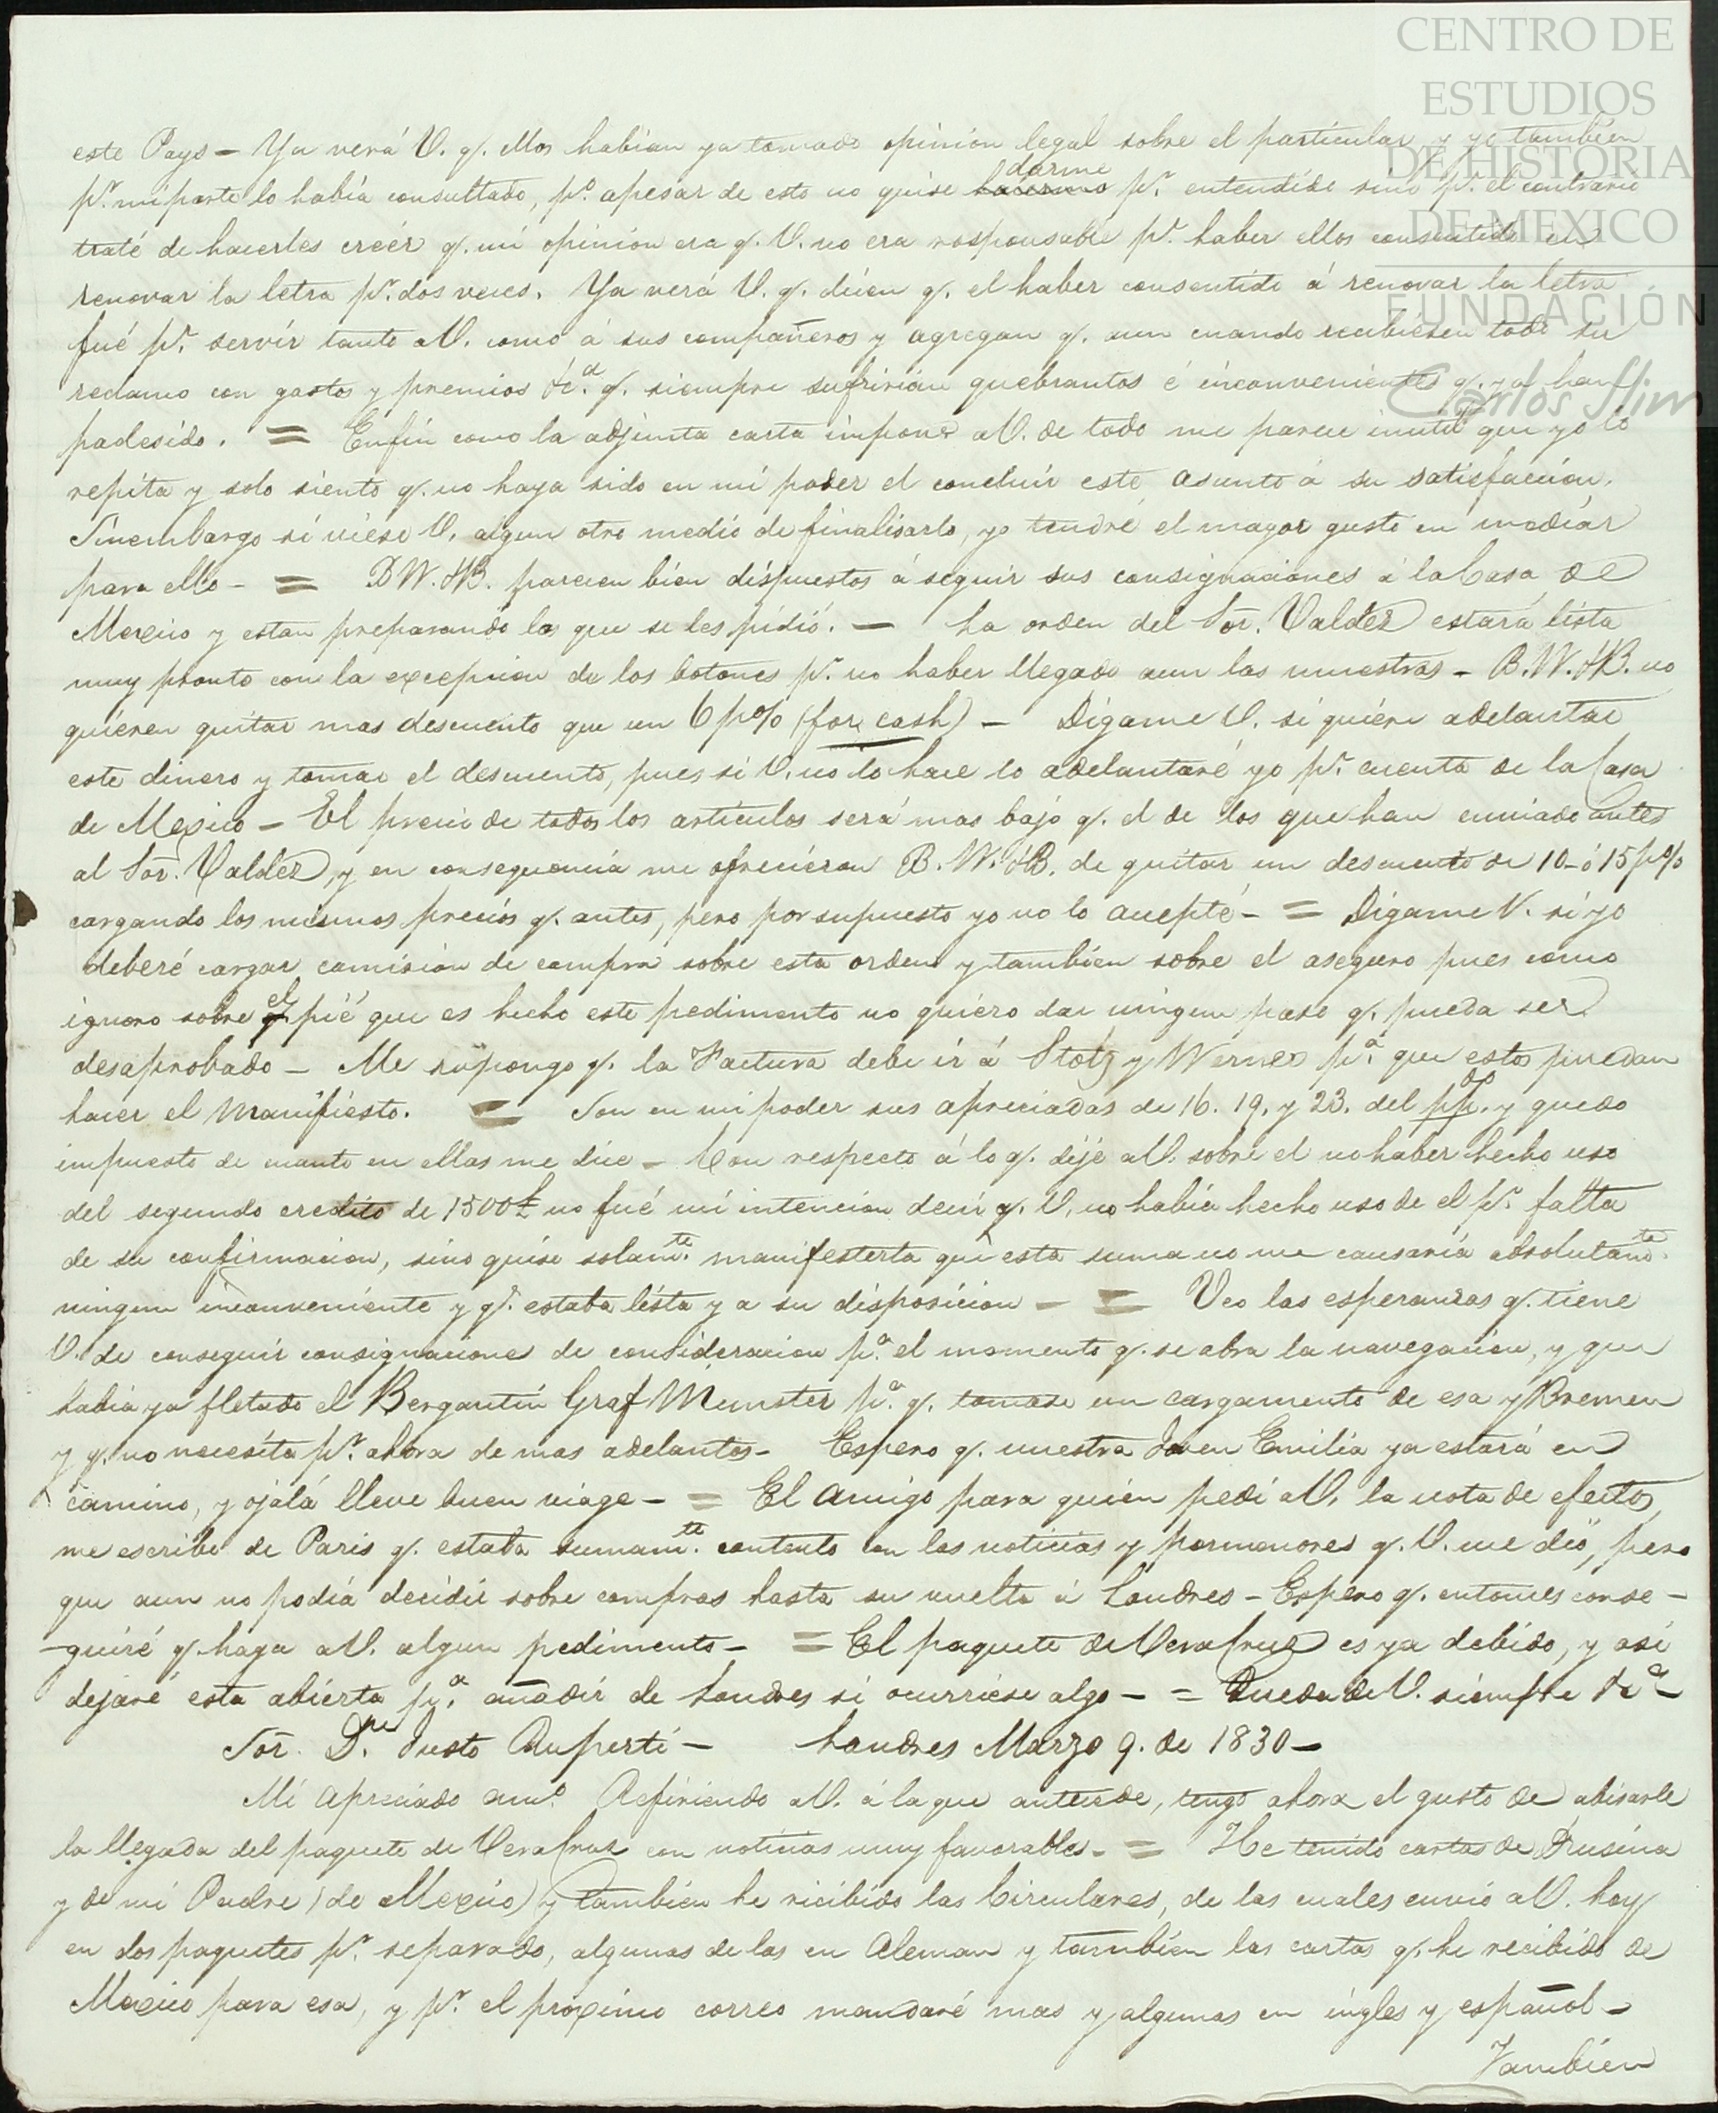 CENTRO DE
ESTUDIOS
DE HISTORIA
DE MEXICO
FUNDACIÓN
Carlos Slim
este Pays – Ya verá V. q. ellos habian ya tomado opinion legal sobre el particular y yo tambien
pr. mi parte lo habia consultado, po. apesar de esto no quise hacerme darme pr. entendido sino pr. el contrario
traté de hacerles creér q. mi opinion era q. V. no era responsable pr. haber ellos consentido en
renovar la letra pr. dos veces. Ya verá V. q. dicen q. el haber consentido á renovar la letra
fué pr. servir tanto a V. como á sus compañeros y agregan q. aun cuando recibiesen todo su
reclamo con gastos y premios &c.a q. siempre sufririan quebrantos é inconvenientes q. ya han
padesido. = Enfin como la adjunta carta impone a V. de todo me parece inutil que yo lo
repita y solo siento q. no haya sido en mi poder el concluir este asunto á su satisfaccion.
Sinembargo si viese V. algun otro medio de finalisarlo, yo tendré el mayor gusto en mediar
para ello – = B W. & B. parecen bien dispuestos á seguir sus consignaciones á la Casa de
Mexico y estan preparando las que se les pidió. — La orden del Sor. Valdez estará lista
muy pronto con la excepcion de los botones pr. no haber llegado aun las muestras – B. W. & B. no
quieren quitar mas descuento que un 6 p% (for cash) – Digame V. si quiere adelantar
este dinero y tomar el descuento, pues si V. no lo hace lo adelantaré yo pr. cuenta de la Casa
de Mexico – El precio de todos los articulos será mas bajo q. el de los que han enviado antes
al Sor. Valdez, y en consequencia me ofrecieron B. W. & B. de quitar un descuento de 10 – ó 15 p%
cargando los mismos precios q. antes, pero por supuesto yo no lo acepté – = Digame V. si yo
deberé cargar comision de compra sobre esta orden y tambien sobre el aseguro pues como
ignoro sobre el pié que es hecho este pedimento no quiero dar ningun paso q. pueda ser
desaprobado – Me supongo q. la Factura debe ir á Stolz y Werner pa. que estos puedan
hacer el Manifiesto. = Son en mi poder sus apreciadas de 16. 19. y 23. del ppdo. y quedo
impuesto de cuanto en ellas me dice – Con respecto á lo q. dije a V. sobre el no haber hecho uso
del segundo credito de 1500£ no fué mi intencion decir q. V. no habia hecho uso de el pr. falta
de su confirmacion, sino quise solamte. manifesterla que esta suma no me causaria absolutamte.
ningun inconveniente y q. estaba lista y a su disposicion – = Veo las esperanzas q. tiene
V. de conseguir consignaciones de consideracion pa. el momento q. se abra la navegacion, y que
habia ya fletado el Bergantin Graf Munster pa. q. tomase un cargamento de esa y Bremen
y q. no necesita pr. ahora de mas adelantos – Espero q. nuestra Joven Emilia ya estará en
camino, y ojalá lleve buen viage – = El Amigo para quien pedi a V. la nota de efectos,
me escribe de Paris q. estaba sumamte. contento con las noticias y pormenores q. V. me dió, pero
que aun no podia decidir sobre compras hasta su vuelta á Londres – Espero q. entonces conse–
–guiré q. haga a V. algun pedimento – = El paquete de Vera Cruz es ya debido, y asi
dejaré esta abierta pa. añadir de Londres si ocurriese algo – = Queda de V. siempre &ca –
Sor. Dn. Justo Ruperti – Londres Marzo 9. de 1830 –
Mi apreciado amo. Refiriendo a V. á la que antecede, tengo ahora el gusto de abisarle
la llegada del paquete de Vera Cruz con noticias muy favorables – = He tenido cartas de Drusina
y de mi Padre (de Mexico) y tambien he recibido las Circulares, de las cuales envio a V. hoy
en dos paquetes pr. separado, algunas de las en Aleman y tambien las cartas q. he recibido de
Mexico para esa, y pr. el proximo correo mandaré mas y algunas en ingles y español –
Tambien